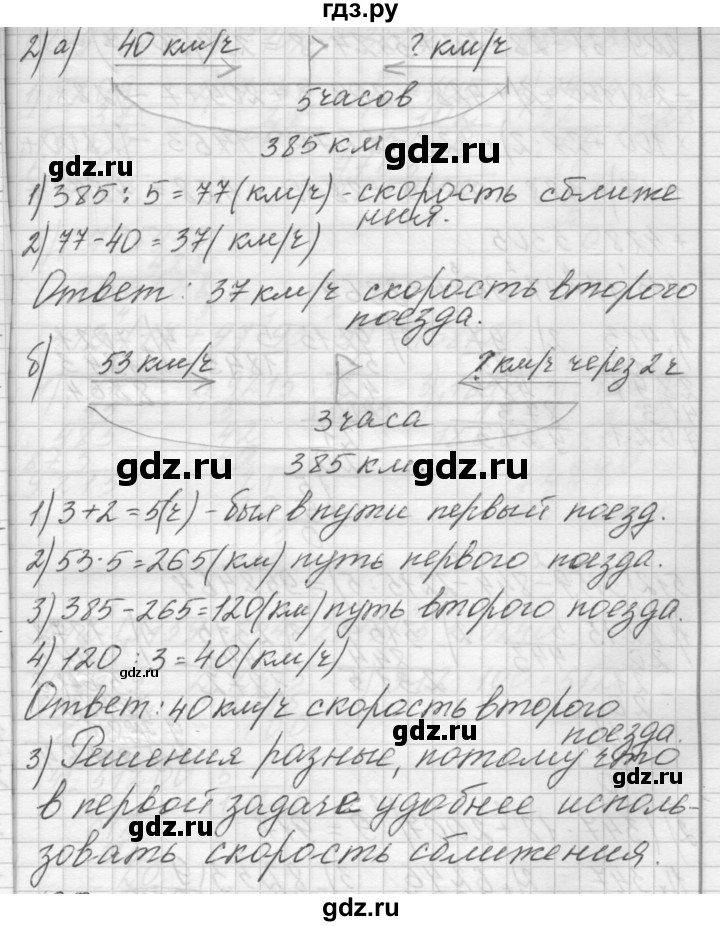 гдз.ру
2) а) 40 км/ч ? км/ч
5 часов
385 км
gdz.ru
gdz.ru
1) 385 : 5 = 77 (км/ч) - скорость сближе
ния.
2) 77 - 40 = 37 (км/ч)
Ответ: 37 км/ч скорость второго
поезда.
б) 53 км/ч ? км/ч через 2 ч
3 часа
gdz.ru gdz.ru
385 км
1) 3 + 2 = 5 (ч) - был в пути первый поезд.
2) 53 · 5 = 265 (км) путь первого поезда.
3) 385 - 265 = 120 (км) путь второго поезда.
4) 120 : 3 = 40 (км/ч)
gdz.ru
Ответ: 40 км/ч скорость второго
поезда.
gdz.ru
3) Решения разные, потому что
gdz.ru
в первой задаче удобнее исполь-
gdz.ru
зовать скорость сближения.
gdz.ru